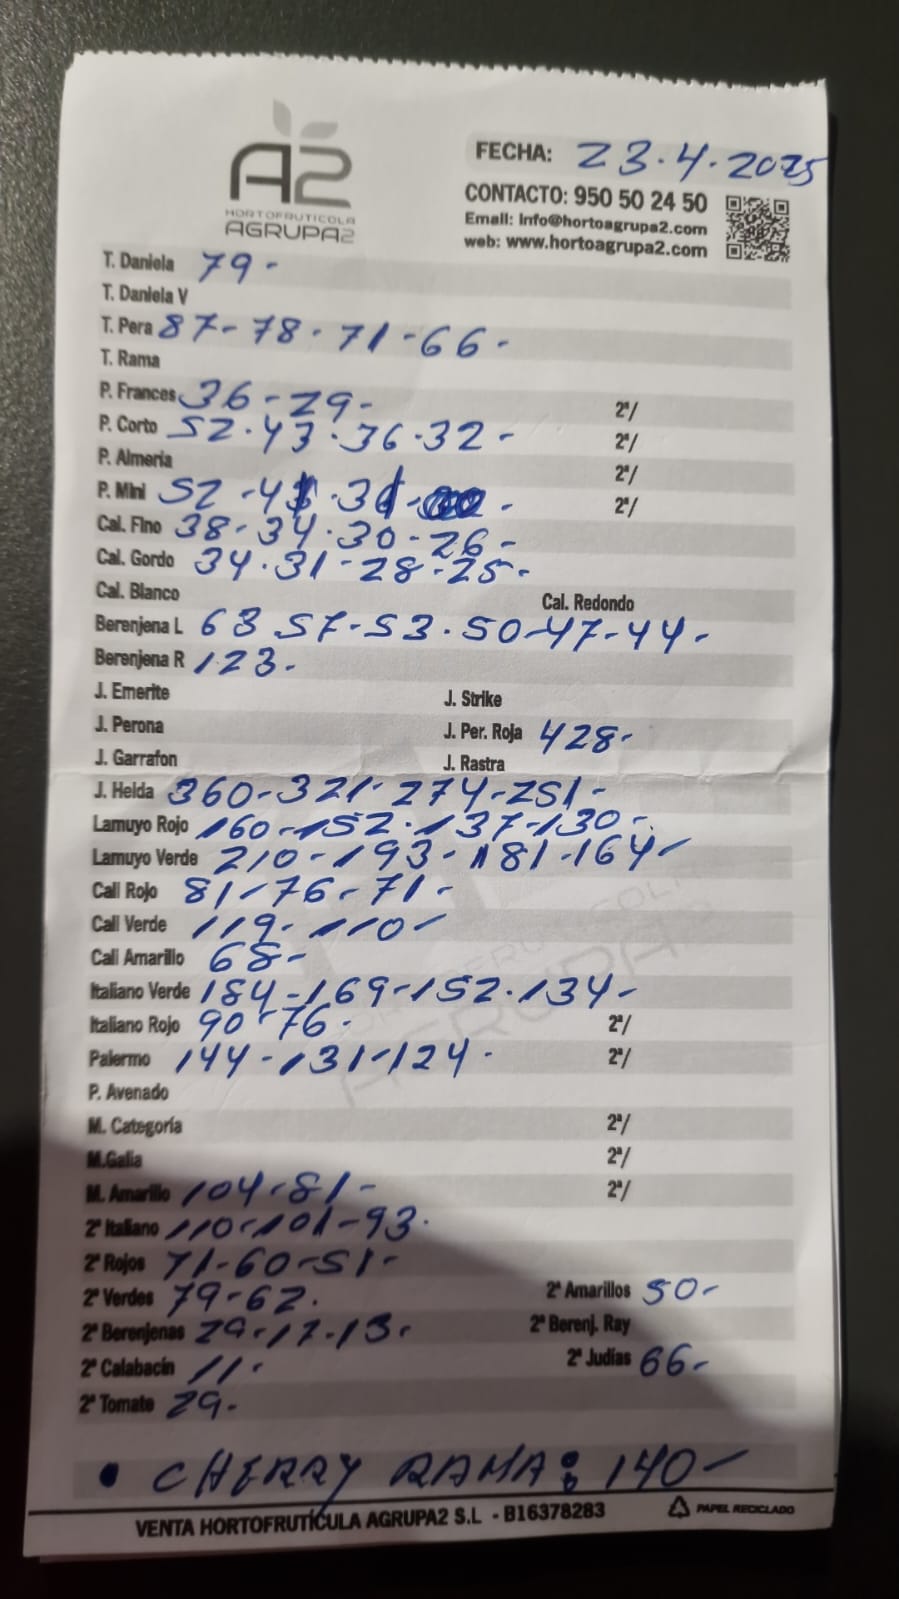 A2
HORTOFRUTICOLA
AGRUPA2
FECHA: 23.4.2025
CONTACTO: 950 50 24 50
Email: Info@hortoagrupa2.com
web: www.hortoagrupa2.com
T. Daniela 79-
T. Daniela V
T. Pera 87-78-71-66-
T. Rama
P. Frances 36-29- 2ª/
P. Corto 52.43.36.32- 2ª/
P. Almeria 2ª/
P. Mini 52 - - 2ª/
Cal. Fino 38-34.30-26-
Cal. Gordo 34.31-28-25-
Cal. Blanco Cal. Redondo
Berenjena L 63 57-53.50-47-44-
Berenjena R 123-
J. Emerite J. Strike
J. Perona J. Per. Roja 428-
J. Garrafon J. Rastra
J. Helda 360-321-274-251-
Lamuyo Rojo 160-152.137-130-
Lamuyo Verde 210-193-181-164-
Cali Rojo 81-76-71-
Cali Verde 119-110-
Cali Amarillo 68-
Italiano Verde 184-169-152.134-
Italiano Rojo 90-76- 2ª/
Palermo 144-131-124- 2ª/
P. Avenado
M. Categoría 2ª/
M.Galia 2ª/
M. Amarillo 104-81- 2ª/
2ª Italiano 110-101-93-
2ª Rojos 71-60-51-
2ª Verdes 79-62. 2ª Amarillos 50-
2ª Berenjenas 29-17-13- 2ª Berenj. Ray
2ª Calabacín 11- 2ª Judías 66-
2ª Tomate 29-
• CHERRY RAMA: 140-
VENTA HORTOFRUTÍCULA AGRUPA2 S.L - B16378283 PAPEL RECICLADO